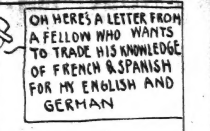 OH HERE'S A LETTER FROM
A FELLOW WHO WANTS
TO TRADE HIS KNOWLEDGE
OF FRENCH & SPANISH
FOR MY ENGLISH AND
GERMAN